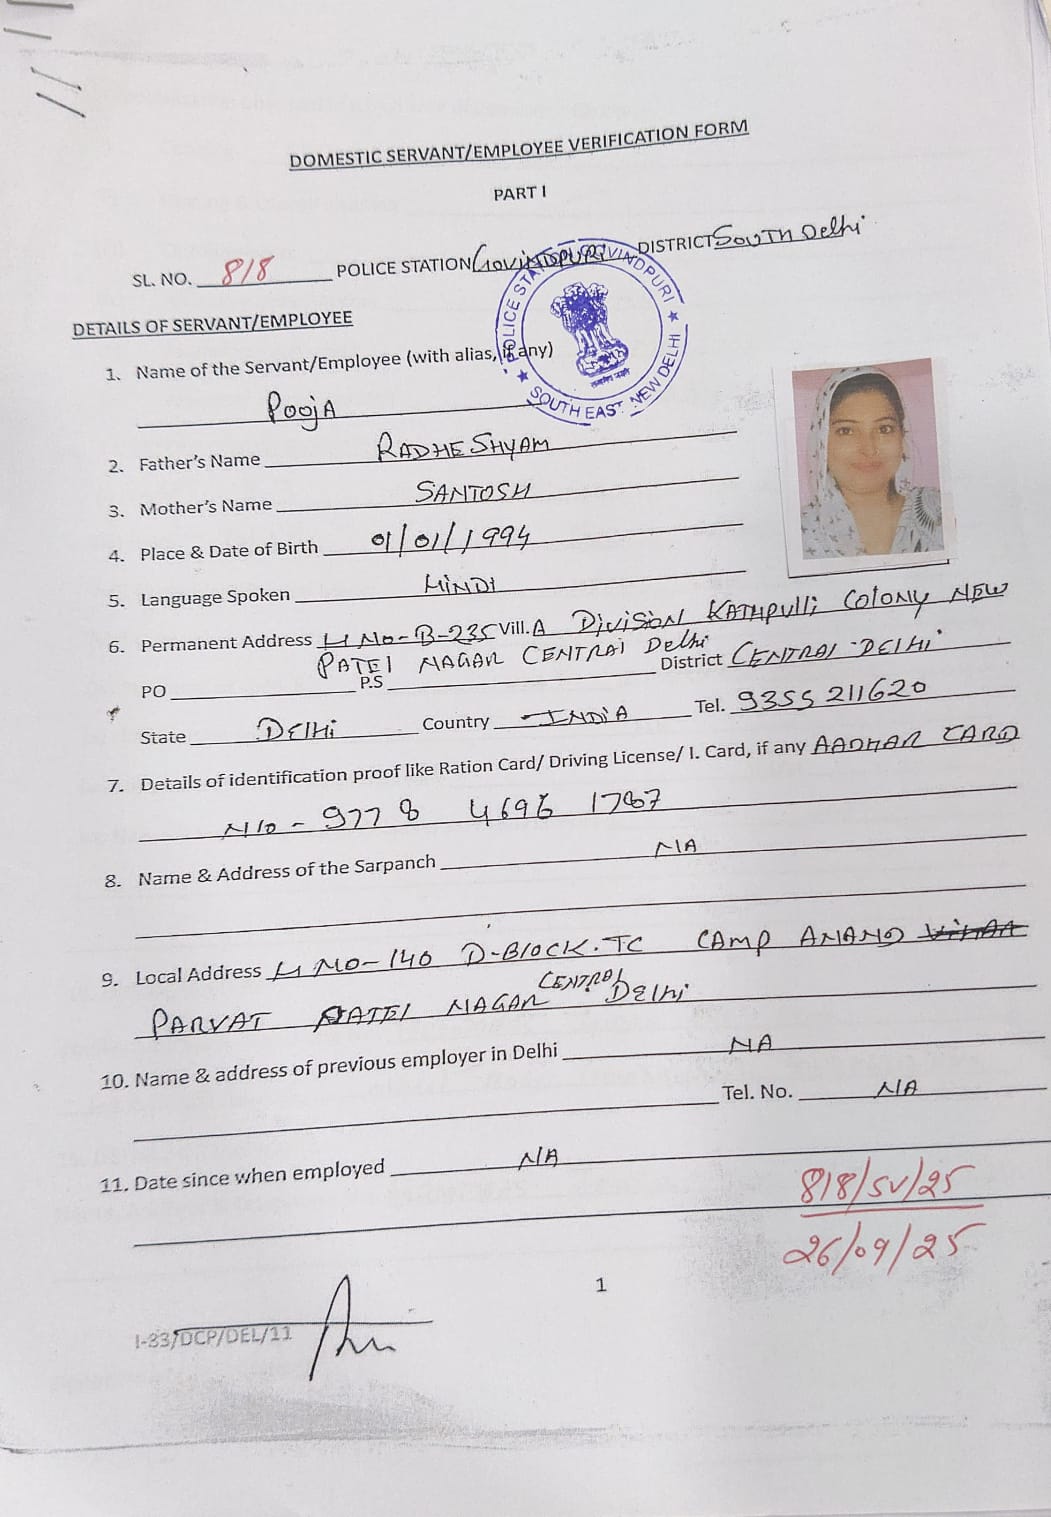 DOMESTIC SERVANT/EMPLOYEE VERIFICATION FORM
PART I
SL. NO. 818 POLICE STATION GOVINDPURI DISTRICT SOUTH Delhi
POLICE STATION GOVINDPURI ★ SOUTH EAST NEW DELHI ★
DETAILS OF SERVANT/EMPLOYEE
1. Name of the Servant/Employee (with alias, if any)
POOJA
2. Father's Name RADHE SHYAM
3. Mother's Name SANTOSH
4. Place & Date of Birth 01/01/1994
5. Language Spoken HINDI
6. Permanent Address H NO-B-235 Vill. A Division KATHPUlli COlONY NEW
PATEl NAGAR CENTRAl Delhi
PO P.S District CENTRAl DElHi
State DElHi Country INDIA Tel. 9355 211620
7. Details of identification proof like Ration Card/ Driving License/ I. Card, if any AADHAR CARD
NO - 9778 4696 1787
8. Name & Address of the Sarpanch N/A
9. Local Address H NO-140 D-BlOCK. TC CAMP ANAND
PARVAT PATEl NAGAR CENTRAl DElhi
10. Name & address of previous employer in Delhi NA
Tel. No. N/A
11. Date since when employed N/A
818/SV/25
26/09/25
1
I-33/DCP/DEL/11